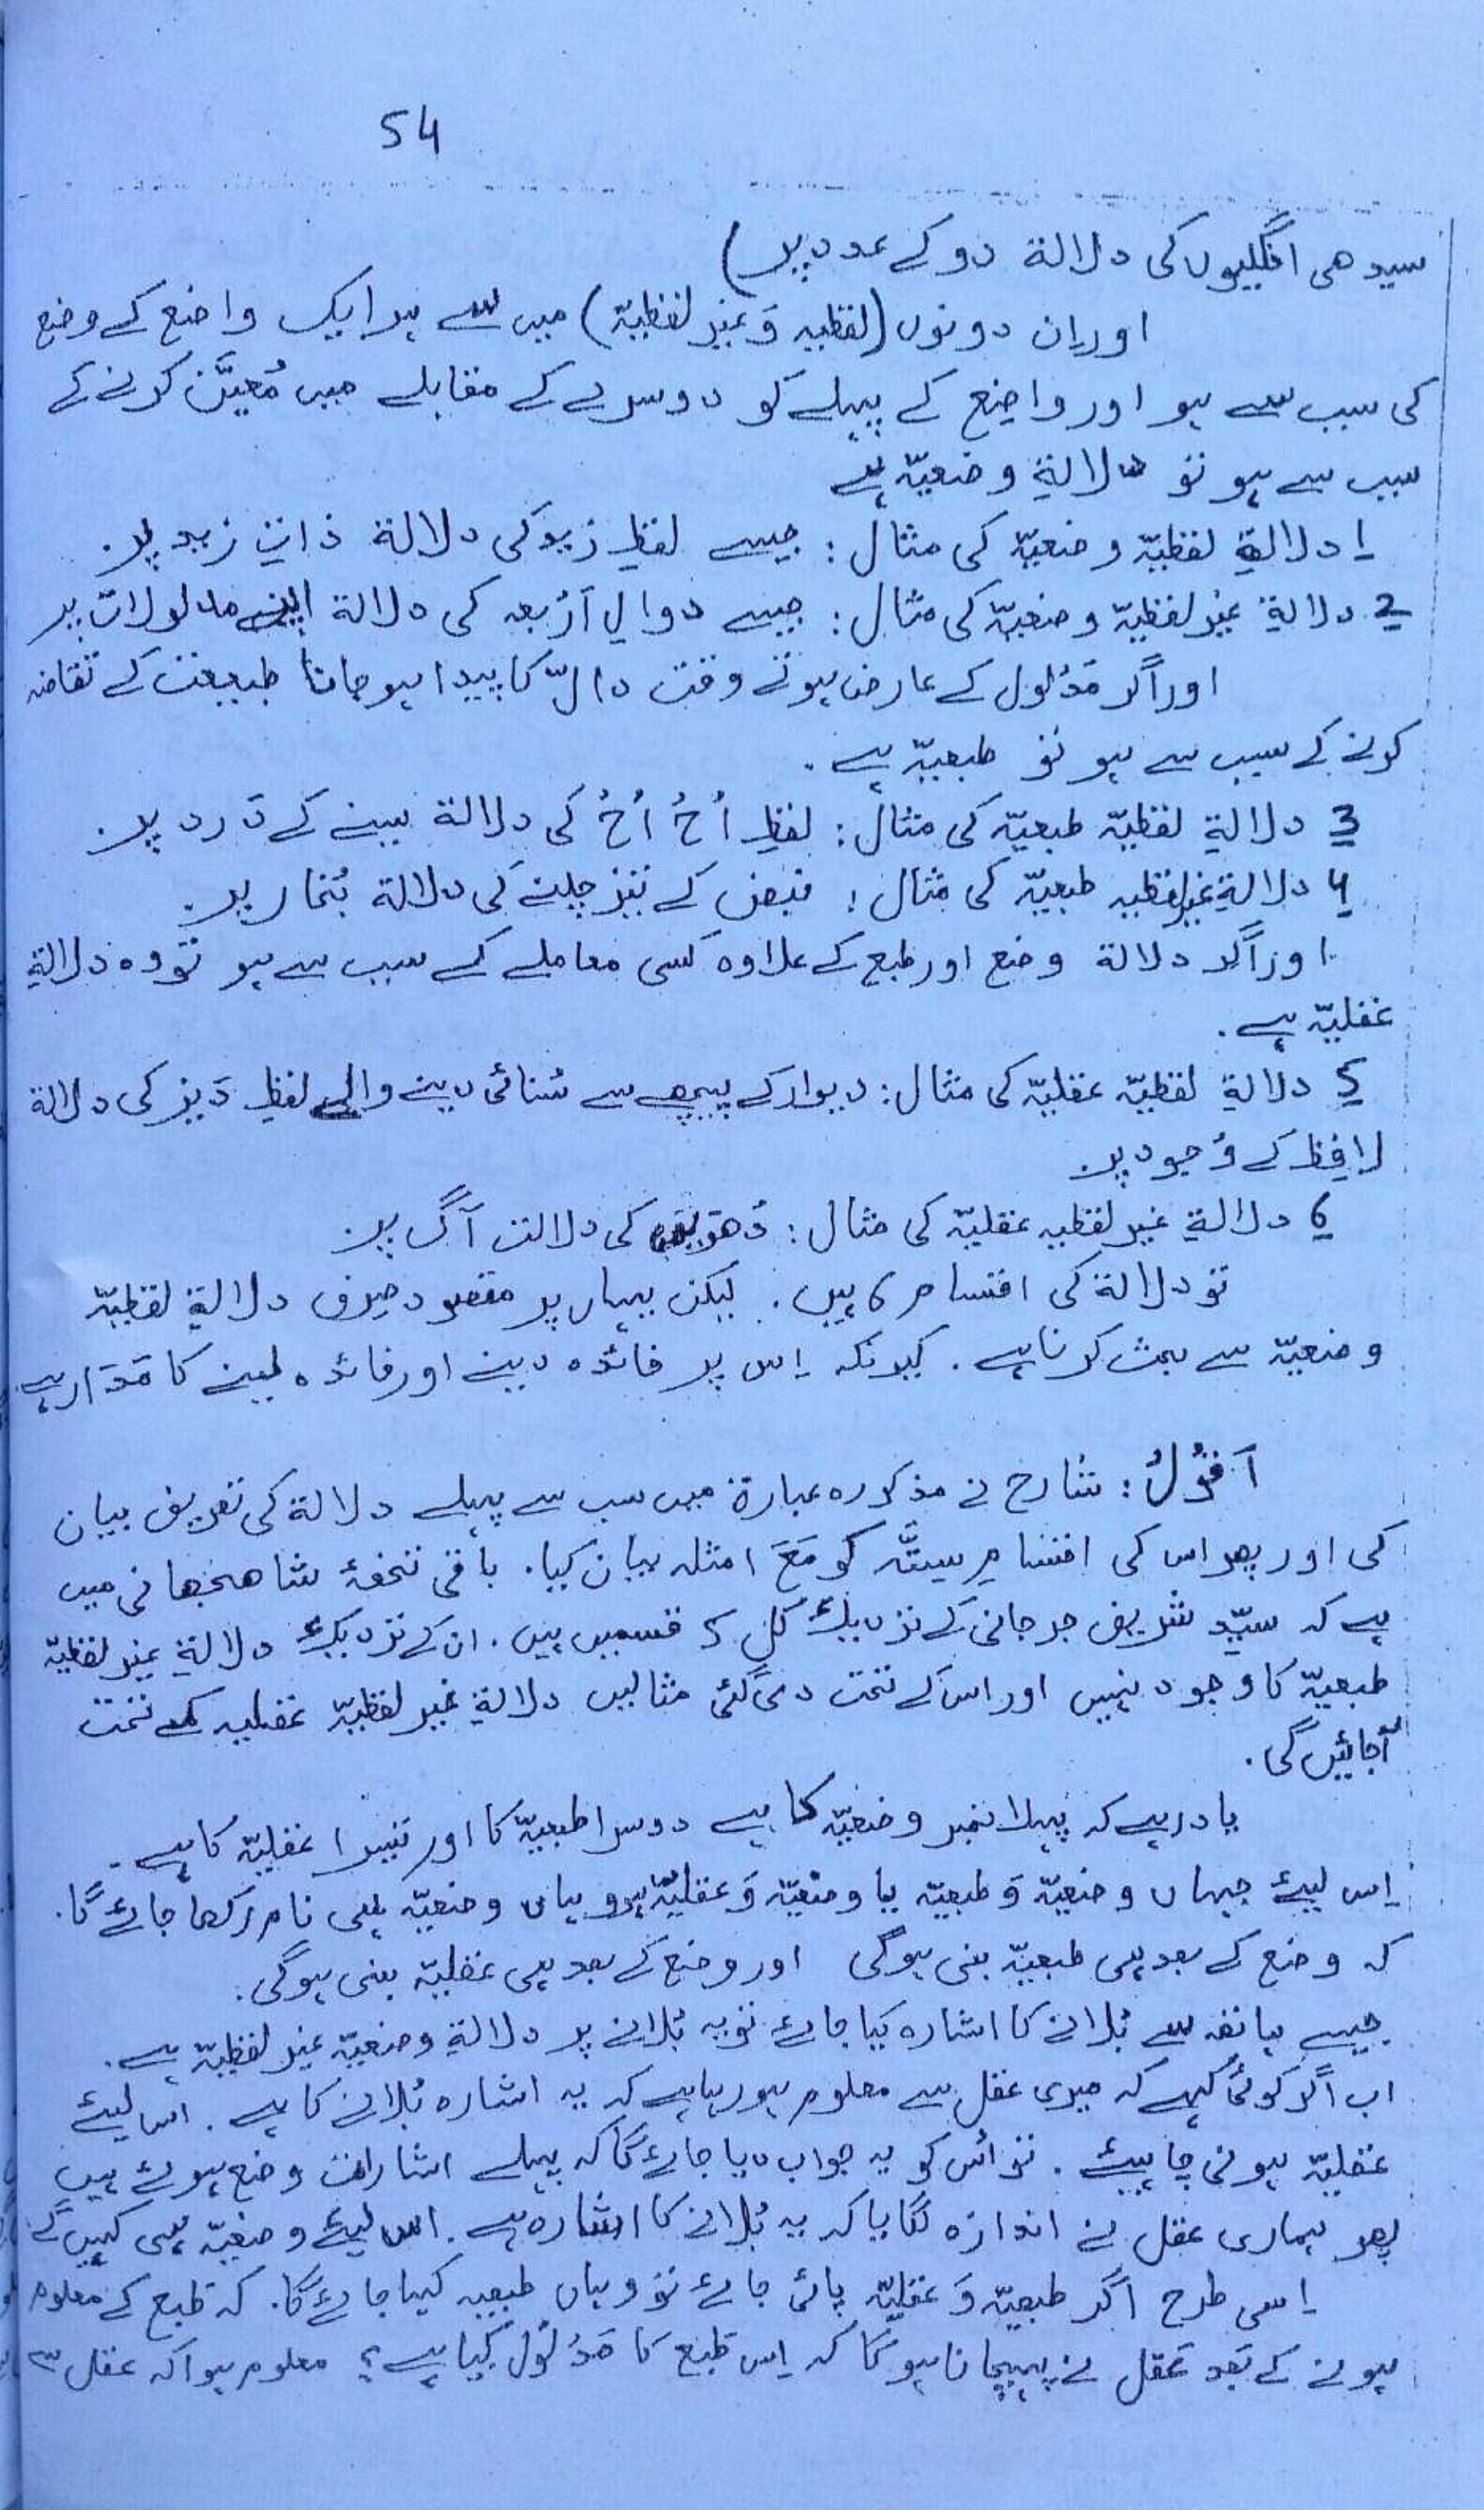 54
سیدھی انگلیوں کی دلالة دو کے عدد پر)
اور اِن دونوں (لفظیہ وَ غیر لفظیّة) میں سے ہر ایک واضع کے وضع
کی سبب سے ہو اور واضِع کے پہلے کو دوسرے کے مقابلے میں مُعیَّن کرنے کے
سبب سے ہو تو دلالةِ وضعیّہ ہے
1 دلالةِ لفظیّہ وضعیّہ کی مثال: جیسے لفظِ زید کی دلالة ذاتِ زید پر.
2 دلالةِ غیر لفظیّہ وضعیّہ کی مثال: جیسے دوالِ اَرْبعہ کی دلالة اپنے مدلولات پر
اور اگر مَدْلول کے عارض ہوتے وقت دالّ کا پیدا ہو جانا طبیعت کے تقاضہ
کرنے کے سبب سے ہو تو طبعیّہ ہے.
3 دلالةِ لفظیّہ طبعیّہ کی مثال: لفظِ اُحُ اُحُ کی دلالة سینے کے دَرد پر.
4 دلالةِ غیر لفظیہ طبعیّہ کی مثال: نبض کے تیز چلنے کی دلالة بُخار پر.
اور اگر دلالة وضع اور طبع کے علاوہ کسی معاملے کے سبب سے ہو تو وہ دلالةِ
عقلیّہ ہے.
5 دلالةِ لفظیّہ عقلیّہ کی مثال: دیوار کے پیچھے سے سُنائی دینے والے لفظِ دَیز کی دلالة
لافِظ کے وُجود پر.
6 دلالةِ غیر لفظیہ عقلیّہ کی مثال: دُھویں کی دلالت آگ پر.
تو دلالة کی اقسام 6 ہیں. لیکن یہاں پر مقصود صِرف دلالةِ لفظیّہ
وضعیّہ سے بحث کرنا ہے. کیونکہ اِس پر فائدہ دینے اور فائدہ لینے کا مَدَار ہے
اَقُوْلُ: شارح نے مذکورہ عبارة میں سب سے پہلے دلالة کی تعریف بیان
کی اور پھر اس کی اقسامِ سِتَّہ کو مَعَ امثلہ بیان کیا. باقی تحفۂ شاھجھانی میں
ہے کہ سیّد شریف جرجانی کے نزدیک کُل 5 قسمیں ہیں. ان کے نزدیک دلالةِ غیر لفظیّہ
طبعیّہ کا وجود نہیں اور اس کے تحت دی گئی مثالیں دلالةِ غیر لفظیّہ عقلیہ کے تحت
آجائیں گی.
یاد رہے کہ پہلا نمبر وضعیّہ کا ہے دوسرا طبعیّہ کا اور تیسرا عقلیّہ کا ہے.
اِس لیئے جہاں وضعیّہ وَ طبعیّہ یا وضعیّہ وَ عقلیّہ ہو وہاں وضعیّہ ہی نام رکھا جائے گا.
کہ وضع کے بعد ہی طبعیّہ بنی ہوگی اور وضع کے بعد ہی عقلیّہ بنی ہوگی.
جیسے ہاتھ سے بُلانے کا اشارہ کیا جائے تو یہ بُلانے پر دلالةِ وضعیّہ غیر لفظیّہ ہے.
اب اگر کوئی کہے کہ میری عقل سے معلوم ہو رہا ہے کہ یہ اشارہ بُلانے کا ہے. اس لیئے
عقلیّہ ہونی چاہیئے. تو اُس کو یہ جواب دیا جائے گا کہ پہلے اشارات وضع ہوئے ہیں
پھر ہماری عقل نے اندازہ لگایا کہ یہ بُلانے کا اشارہ ہے. اس لیئے وضعیّہ ہی کہیں گے.
اِسی طرح اگر طبعیّہ وَ عقلیّہ پائی جائے تو وہاں طبعیہ کہا جائے گا. کہ طَبع کے معلوم
ہونے کے بَعد عَقل نے پہچانا ہو گا کہ اِس طَبع کا مَدْلُوْل کیا ہے؟ معلوم ہوا کہ عقل